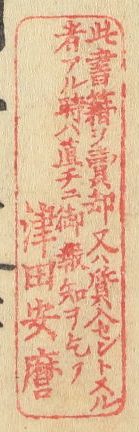 此書籍ヲ賣却又ハ質入セントスル
者アル時ハ直チニ御報知ヲ乞フ
津田安麿